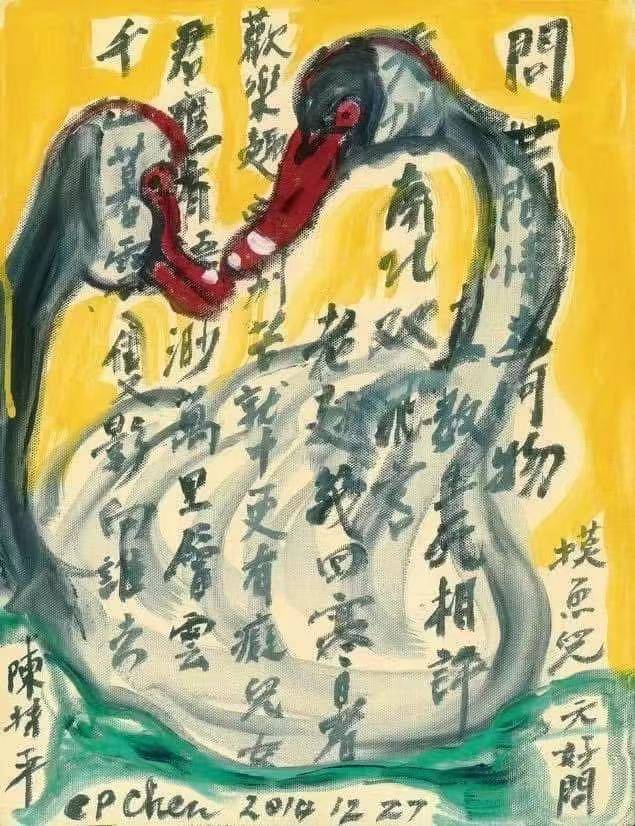 問世間情為何物
直教生死相許
天 南北双飛客
老翅幾回寒暑
歡樂趣離別苦就中更有癡兒女
君應有語渺萬里層雲
千山暮雪隻影向誰去
摸魚兒 元好問
陳 平
CP Chen 2014 12 27